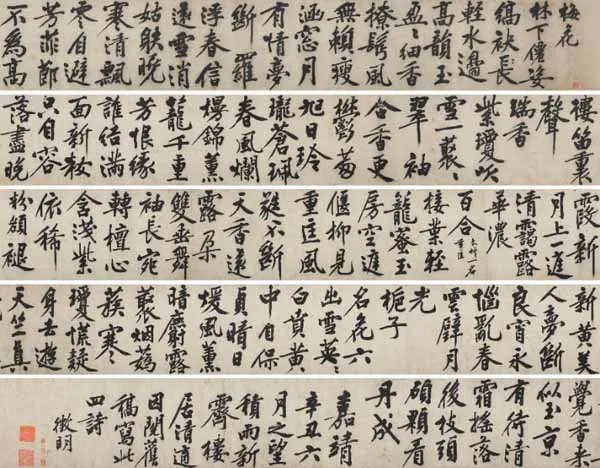 梅花
林下僊姿
縞袂長
輕水邊
高韻玉
盈盈細香
撩鬢風
無賴瘦
涵窓月
有情夢
斷羅
浮春信
遠雪消
姑射晚
寒清飄
零自避
芳菲節
不為高
樓笛裏
聲
瑞香
紫瓊吹
雪一叢叢
翠袖
含香更
鬱葱
旭日玲
瓏蒼珮
春風爛
熳錦薰
籠千重
芳恨緣
誰結滿
面新妝
只自容
落盡晚
霞新
月上一
清靄露
華濃
百合
接葉輕
籠蜜玉
房空
偃抑見
重匡風
不斷
天香遠
露朵
雙垂舞
袖長宛
轉檀心
含淺紫
依稀
粉額褪
新黃美
人夢斷
良宵永
惱亂春
雲壁月
光
梔子
名花六
出雪英英
白賁黃
中自保
貞晴日
煖風薰
暗麝露
叢烟
蔟寒
瓊慌疑
身在遊
天竺真
覺香來
似玉京
有待清
霜搖落
後枝頭
碩顆看
丹成
嘉靖
辛丑六
月之望
積雨新
霽樓
居清適
因閱舊
稿寫此
四詩
徵明